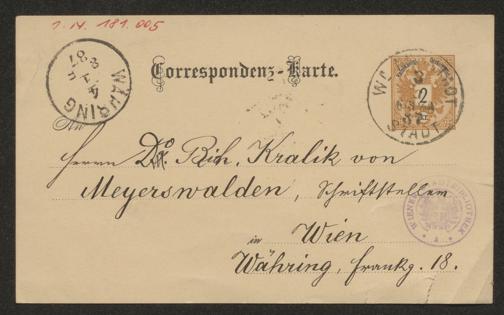 I.N. 181.005
Correspondenz-Karte.
WÄHRING
87
2
STADT
An
Herrn Dr. Rich. Kralik von
Meyerswalden, Schriftstellern
in Wien
Währing, Frankg. 18.